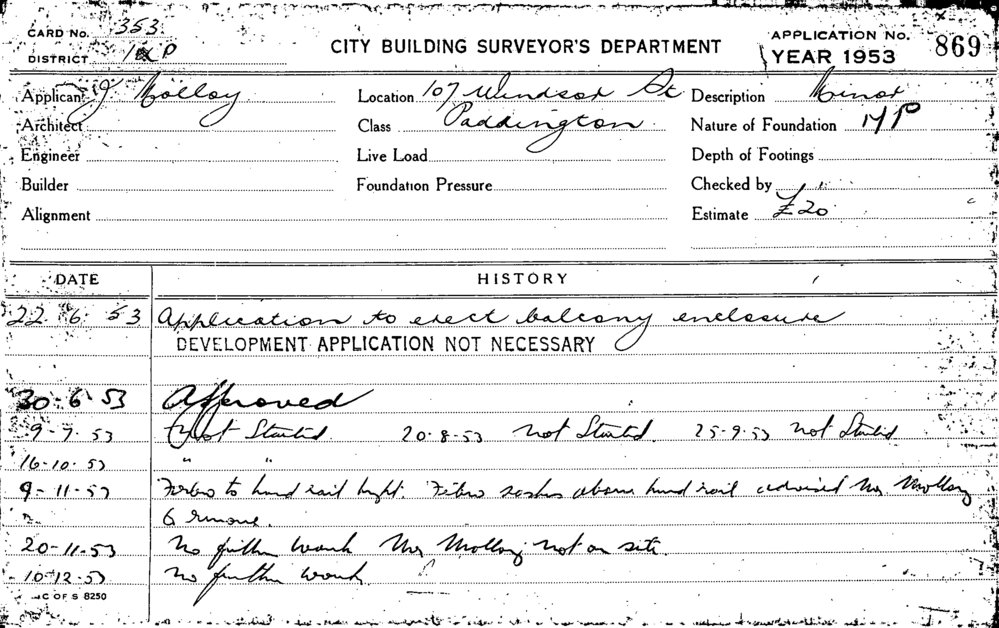 CARD No. 353.
DISTRICT P
CITY BUILDING SURVEYOR'S DEPARTMENT
APPLICATION No. 869
YEAR 1953
Applicant J Molloy
Location 107 Windsor St
Description Minor
Architect
Class Paddington
Nature of Foundation MP
Engineer
Live Load
Depth of Footings
Builder
Foundation Pressure
Checked by
Alignment
Estimate £20
DATE HISTORY
22 6 53 Application to erect balcony enclosure
DEVELOPMENT APPLICATION NOT NECESSARY
30-6 53 Approved
9-7-53 Not Started. 20-8-53 Not Started. 25-9-53 Not Started
16-10-53 " "
9-11-53 Fibro to hand rail hight. Fibro sashes above hand rail advised Mr. Molloy
to remove.
20-11-53 No further work Mr Molloy not on site.
10-12-53 No further work.
C OF S 8250